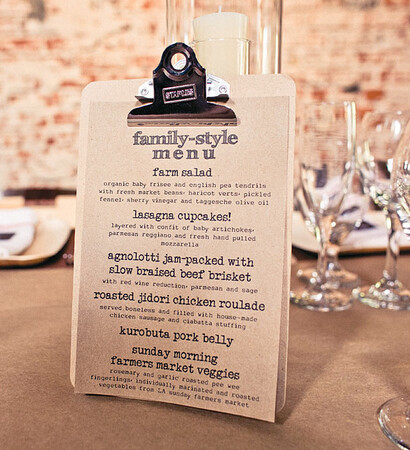 STAPLES
family-style
menu
farm salad
organic baby frisee and english pea tendrils
with fresh market beans, haricot verts, pickled
fennel, sherry vinegar and taggesche olive oil
lasagna cupcakes!
layered with confit of baby artichokes,
parmesan reggiano and fresh hand pulled
mozzarella
agnolotti jam-packed with
slow braised beef brisket
with red wine reduction, parmesan and sage
roasted jidori chicken roulade
served boneless and filled with house-made
chicken sausage and ciabatta stuffing
kurobuta pork belly
sunday morning
farmers market veggies
rosemary and garlic roasted pee wee
fingerlings, individually marinated and roasted
vegetables from LA sunday farmers market